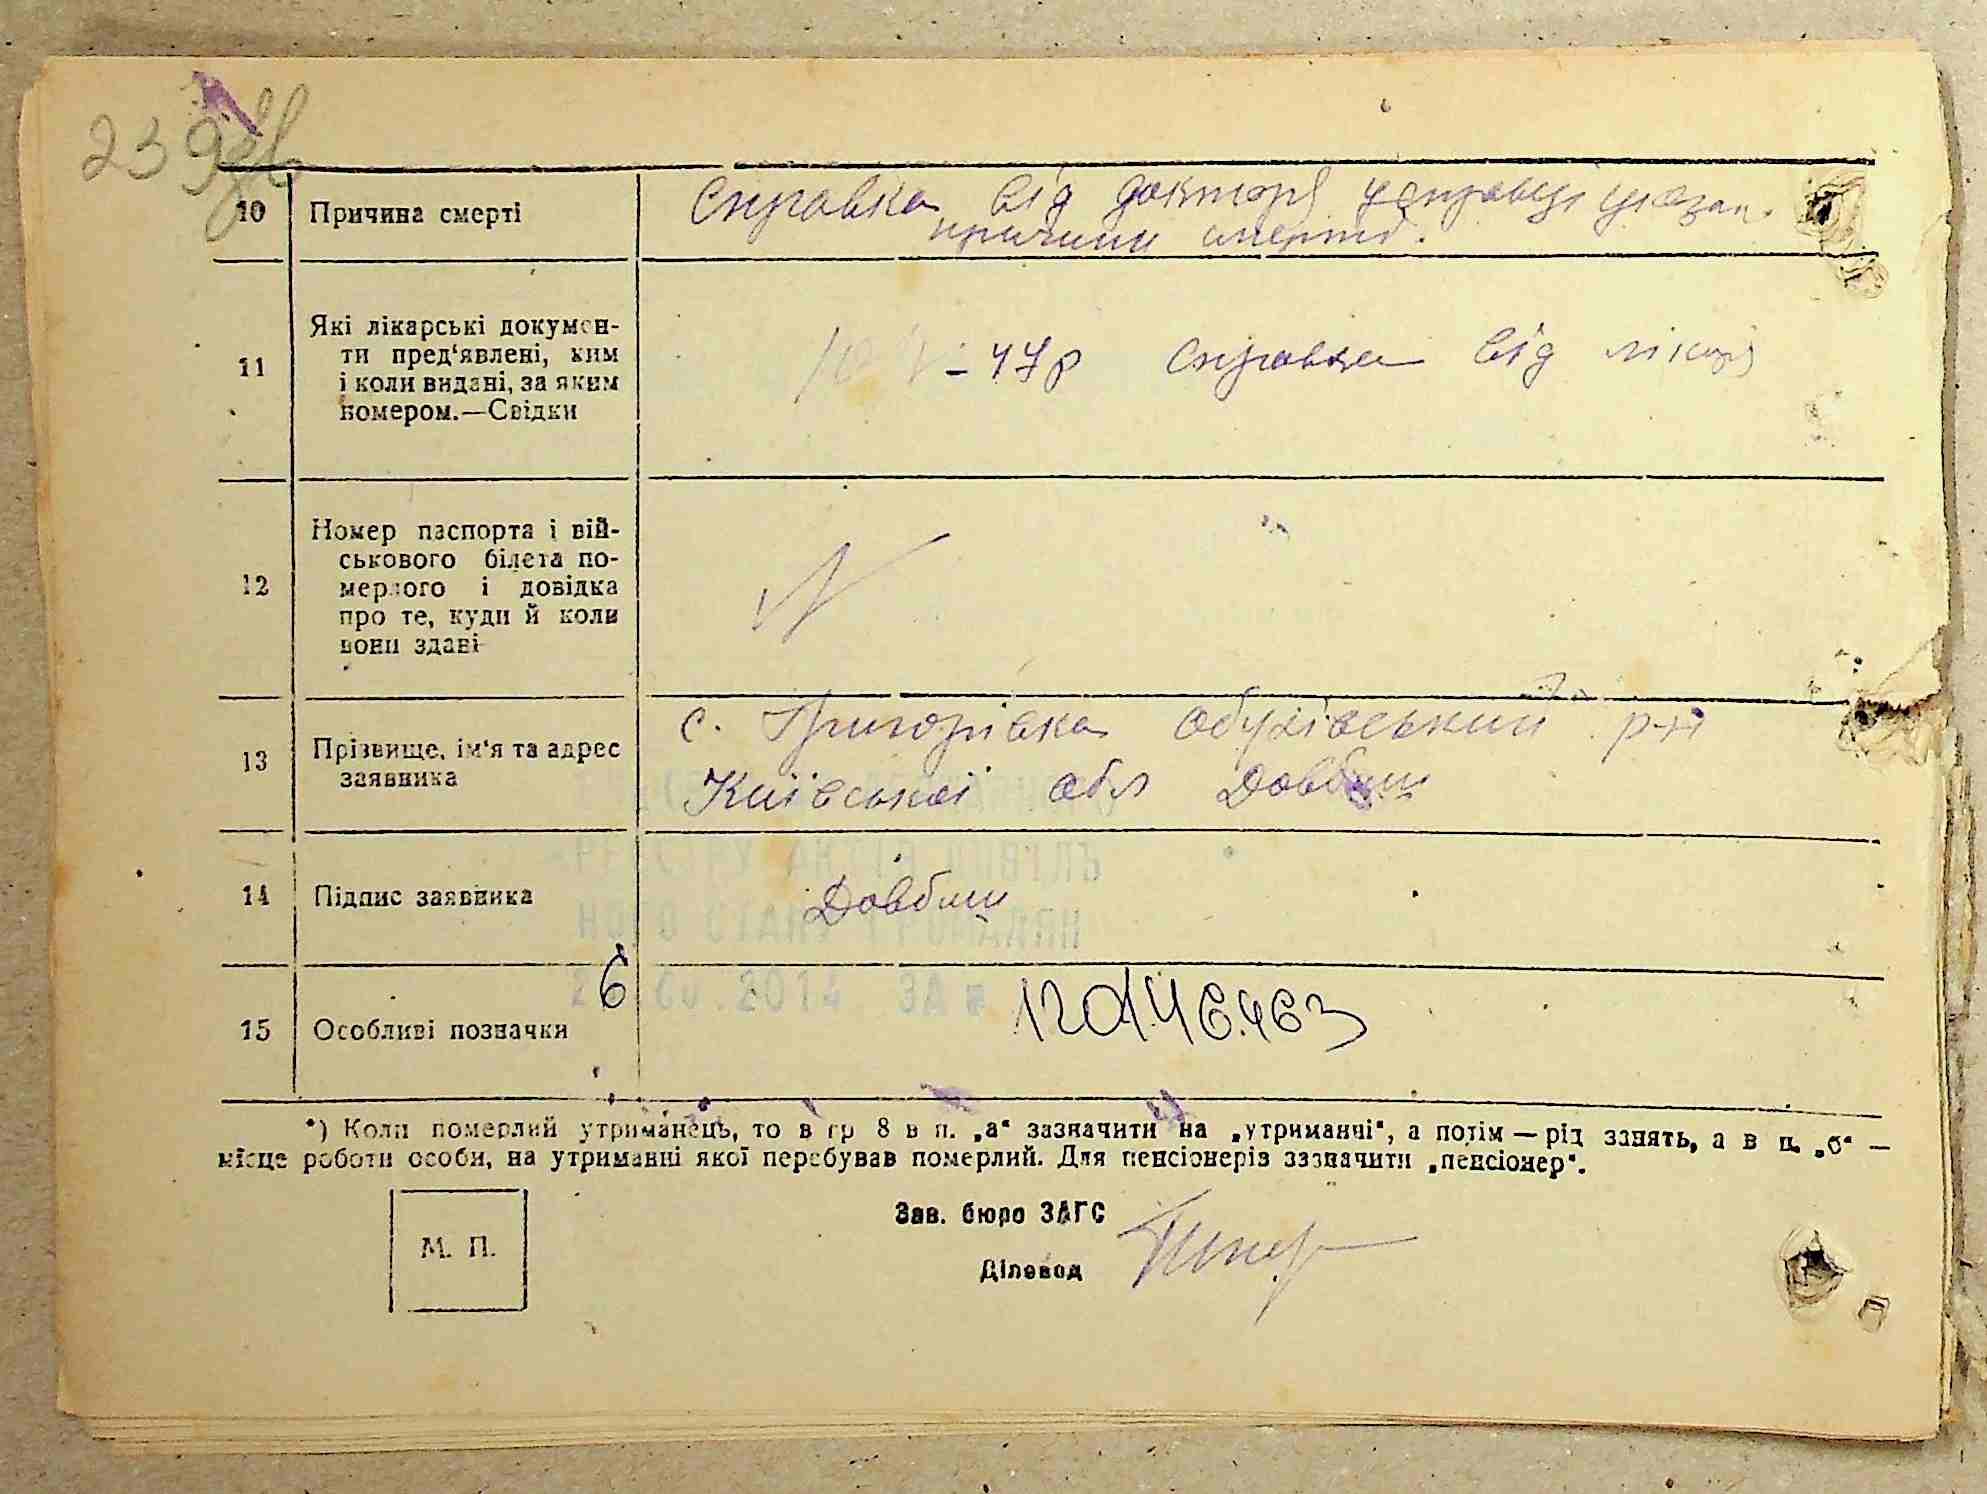 239зв
10 Причина смерті
Справка від доктора у справці указан.
причини смерті.
11 Які лікарські докумен-
ти пред'явлені, ким
і коли видані, за яким
номером.—Свідки
47р Справка від лікаря
12 Номер паспорта і вій-
ськового білета по-
мерлого і довідка
про те, куди й коли
вони здані
13 Прізвище, ім'я та адрес
заявника
с. Григорівка Обухівський р-н
Київської обл Довбиш
14 Підпис заявника
Довбиш
РЕЄСТРУ АКТІВ ЦИВІЛЬ
НОГО СТАНУ ГРОМАДЯН
6 .2014 ЗА №
15 Особливі позначки
*) Коли померлий утриманець, то в гр 8 в п. „а“ зазначити на „утриманні“, а потім — рід занять, а в п. „б“ —
місце роботи особи, на утриманні якої перебував померлий. Для пенсіонерів зазначити „пенсіонер“.
М. П.
Зав. бюро ЗАГС
Діловод